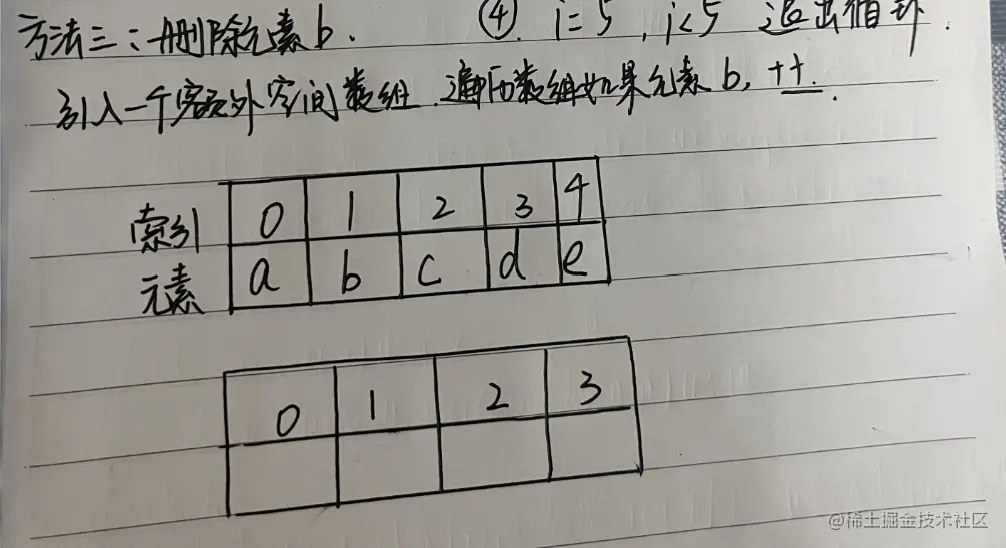 方法三:删除元素b. ④. i=5, i<5 退出循环.
引入一个额外空间数组.遍历数组如果元素b, ++.
索引 0 1 2 3 4
元素 a b c d e
0 1 2 3
@稀土掘金技术社区